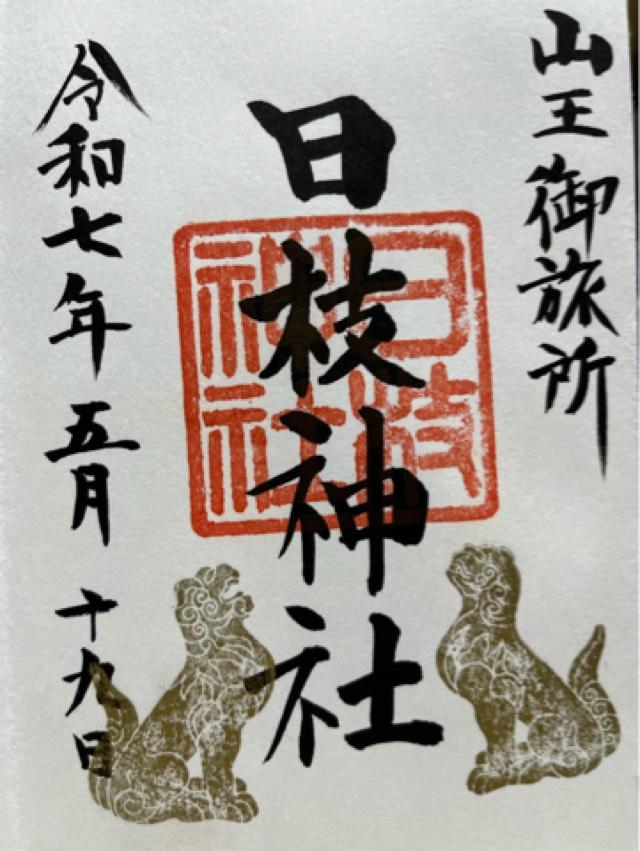 山王御旅所
日枝神社
日枝神社
令和七年五月十九日